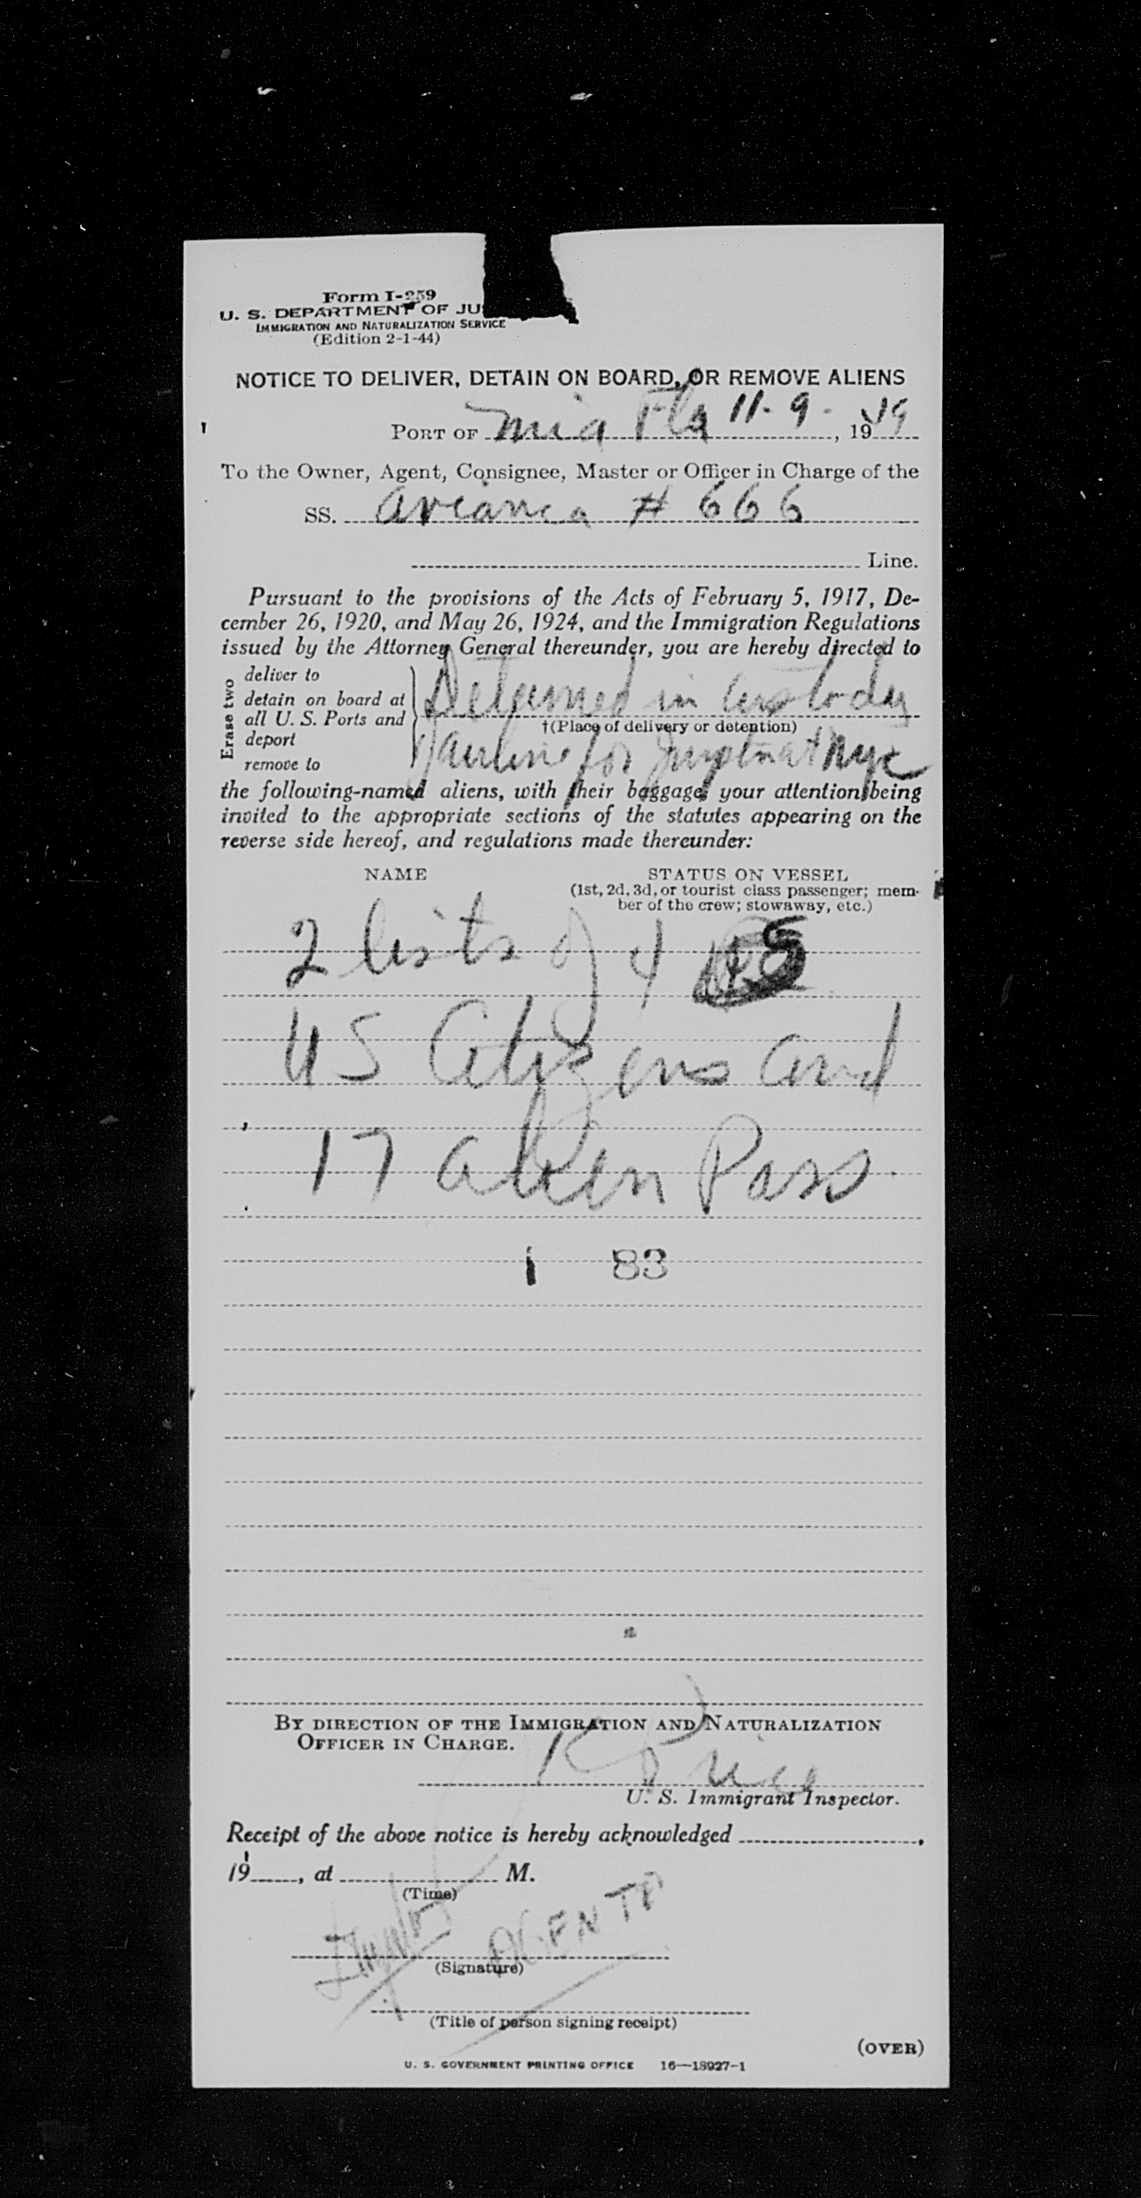 Form I-259
U. S. DEPARTMENT OF JU
IMMIGRATION AND NATURALIZATION SERVICE
(Edition 2-1-44)
NOTICE TO DELIVER, DETAIN ON BOARD, OR REMOVE ALIENS
PORT OF Mia Fla 11-9-, 1949
To the Owner, Agent, Consignee, Master or Officer in Charge of the
SS. Avianca # 666
Line.
Pursuant to the provisions of the Acts of February 5, 1917, De-
cember 26, 1920, and May 26, 1924, and the Immigration Regulations
issued by the Attorney General thereunder, you are hereby directed to
Erase two
deliver to
detain on board at
all U. S. Ports and
deport
remove to
Detained in Custody
†(Place of delivery or detention)
airline for at nyc
the following-named aliens, with their baggage, your attention being
invited to the appropriate sections of the statutes appearing on the
reverse side hereof, and regulations made thereunder:
NAME STATUS ON VESSEL
(1st, 2d, 3d, or tourist class passenger; mem-
ber of the crew; stowaway, etc.)
2 lists of 4
US Citizens and
17 alien Pass.
1 83
BY DIRECTION OF THE IMMIGRATION AND NATURALIZATION
OFFICER IN CHARGE.
Price
U. S. Immigrant Inspector.
Receipt of the above notice is hereby acknowledged ,
19 , at M.
(Time)
AGENTE
(Signature)
(Title of person signing receipt)
(OVER)
U. S. GOVERNMENT PRINTING OFFICE 16—18927-1